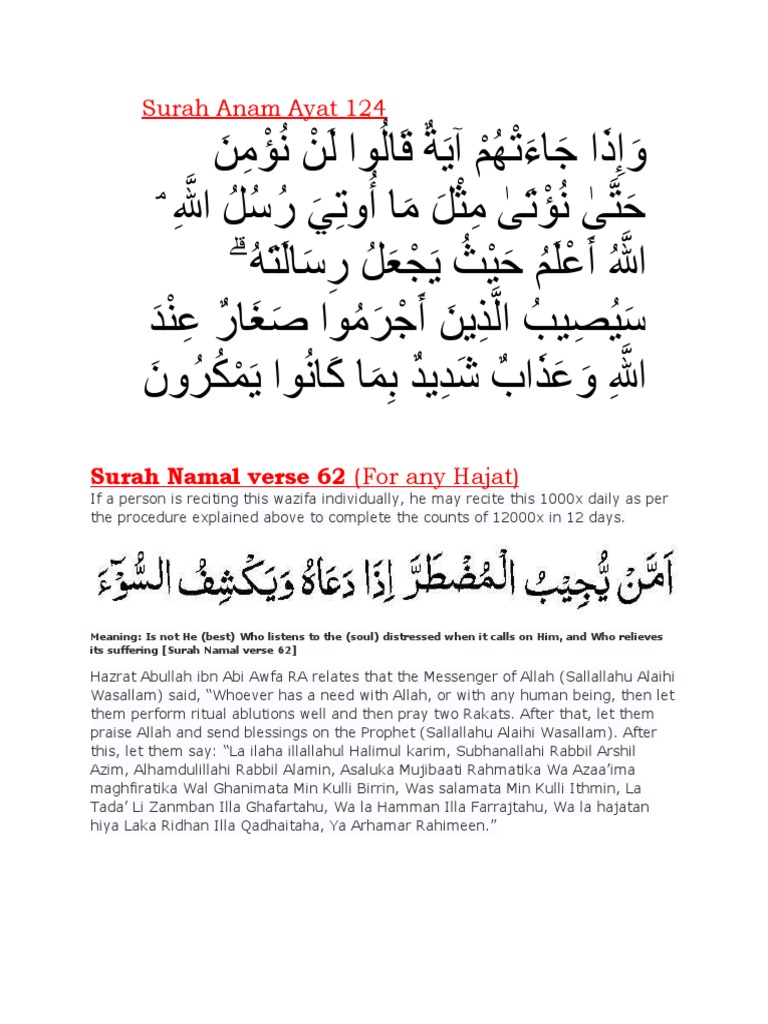 Surah Anam Ayat 124
وَإِذَا جَاءَتْهُمْ آيَةٌ قَالُوا لَنْ نُؤْمِنَ
حَتَّىٰ نُؤْتَىٰ مِثْلَ مَا أُوتِيَ رُسُلُ اللَّهِ ۘ
اللَّهُ أَعْلَمُ حَيْثُ يَجْعَلُ رِسَالَتَهُ ۗ
سَيُصِيبُ الَّذِينَ أَجْرَمُوا صَغَارٌ عِنْدَ
اللَّهِ وَعَذَابٌ شَدِيدٌ بِمَا كَانُوا يَمْكُرُونَ
Surah Namal verse 62 (For any Hajat)
If a person is reciting this wazifa individually, he may recite this 1000x daily as per
the procedure explained above to complete the counts of 12000x in 12 days.
اَمَّنْ يُّجِيْبُ الْمُضْطَرَّ اِذَا دَعَاهُ وَيَكْشِفُ السُّوْٓءَ
Meaning: Is not He (best) Who listens to the (soul) distressed when it calls on Him, and Who relieves
its suffering [Surah Namal verse 62]
Hazrat Abullah ibn Abi Awfa RA relates that the Messenger of Allah (Sallallahu Alaihi
Wasallam) said, “Whoever has a need with Allah, or with any human being, then let
them perform ritual ablutions well and then pray two Rakats. After that, let them
praise Allah and send blessings on the Prophet (Sallallahu Alaihi Wasallam). After
this, let them say: “La ilaha illallahul Halimul karim, Subhanallahi Rabbil Arshil
Azim, Alhamdulillahi Rabbil Alamin, Asaluka Mujibaati Rahmatika Wa Azaa’ima
maghfiratika Wal Ghanimata Min Kulli Birrin, Was salamata Min Kulli Ithmin, La
Tada’ Li Zanmban Illa Ghafartahu, Wa la Hamman Illa Farrajtahu, Wa la hajatan
hiya Laka Ridhan Illa Qadhaitaha, Ya Arhamar Rahimeen.”